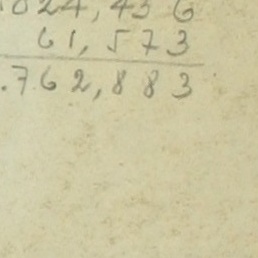 824,456
61,573
.762,883